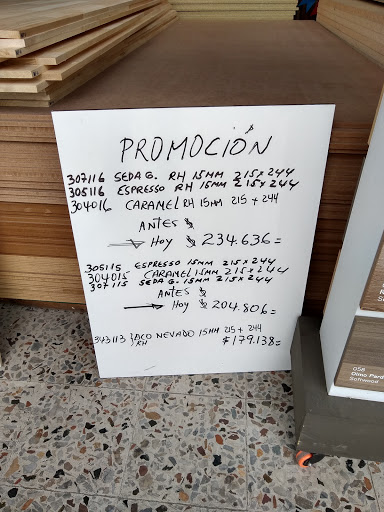 PROMOCIÓN
307116 SEDA G. RH 15MM 215x244
305116 ESPRESSO RH 15MM 215x244
304016 CARAMEL RH 15MM 215 + 244
ANTES $
Hoy $ 234.636=
305115 ESPRESSO 15MM 215x244
304015 CARAMEL 15MM 215x244
307115 SEDA G. 15MM 215x244
ANTES $
Hoy $ 204.806=
343113 NEVADO 15MM 215 + 244
RH $179.138=
058
Olmo Pard
Softwood